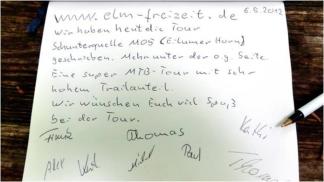 www.elm-freizeit.de 6.8.2012
wir haben heut die Tour
Schunterquelle MO9 (Eilumer Horn)
geschrieben. Mehr unter der o.g. Seite.
Eine super MTB-Tour mit sehr
hohem Trailanteil.
Wir wünschen Euch viel Spaß
bei der Tour.
Frank Thomas Kathi
Alex Michel Paul Thomas